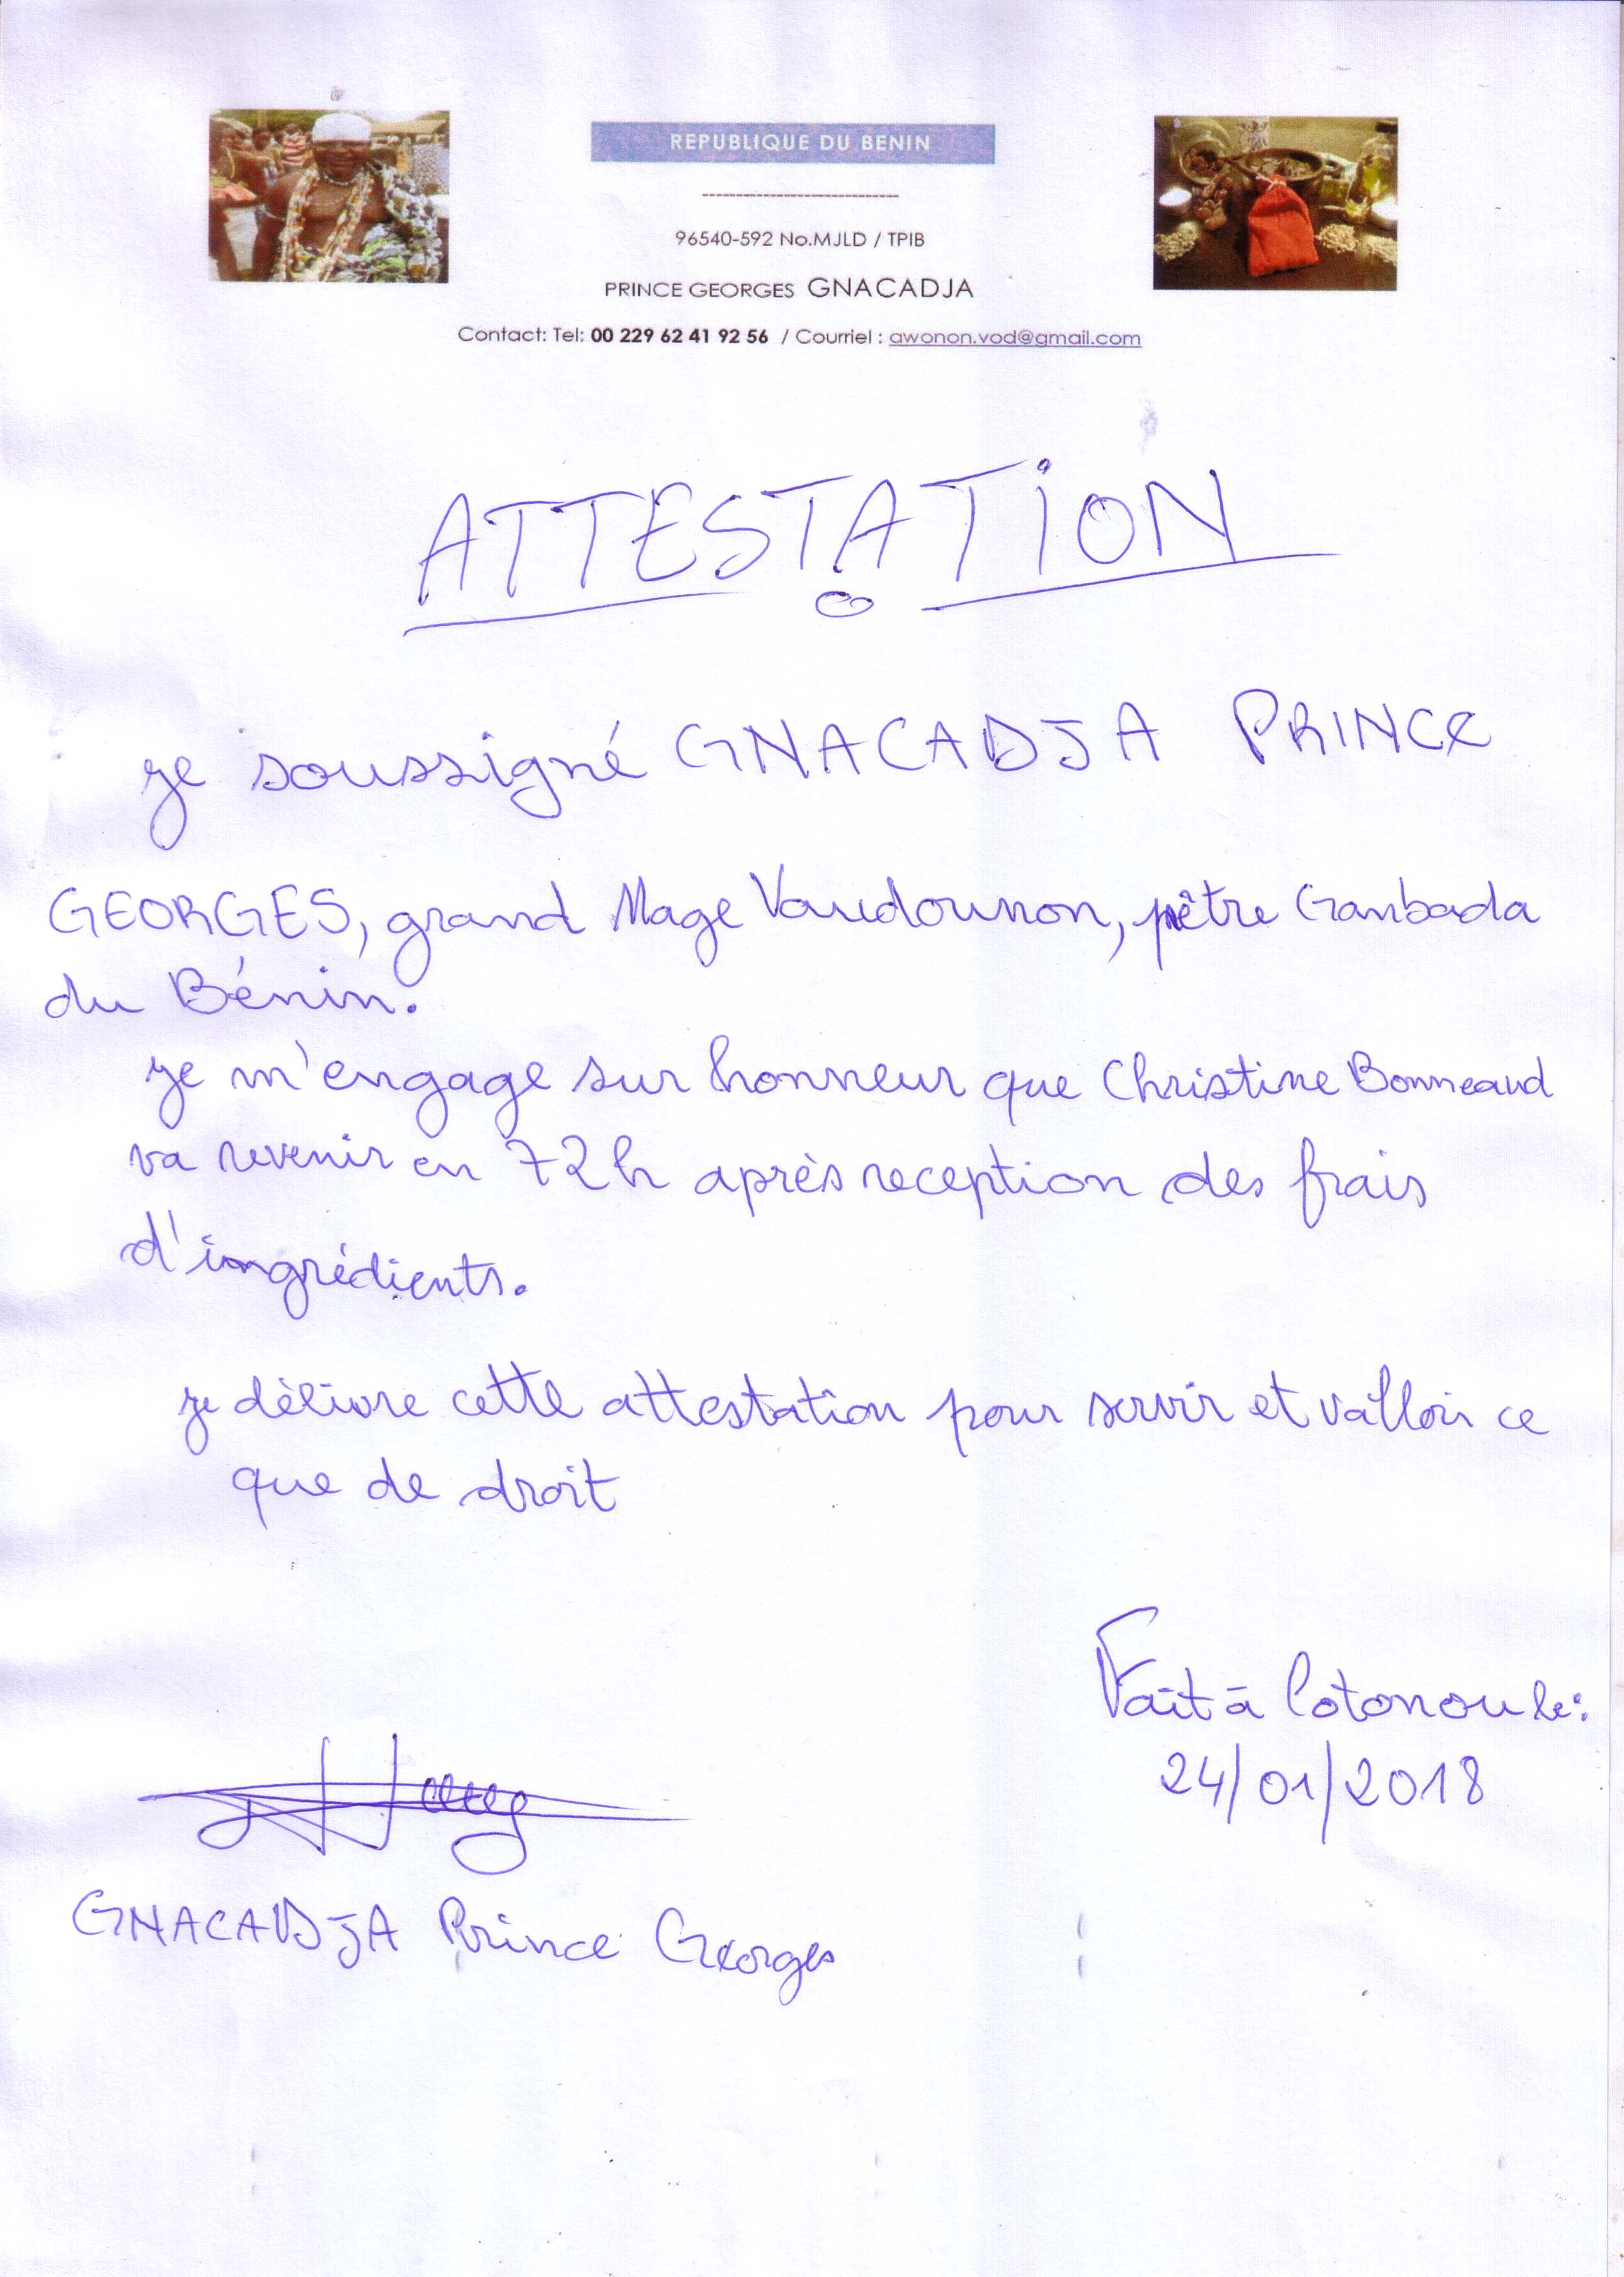 REPUBLIQUE DU BENIN
----------------------------
96540-592 No.MJLD / TPIB
PRINCE GEORGES GNACADJA
Contact: Tel: 00 229 62 41 92 56 / Courriel : awonon.vod@gmail.com
ATTESTATiON
je soussigné GNACADJA PRINCE
GEORGES, grand Mage Vaudounon, prêtre Gambada
du Bénin.
je m'engage sur honneur que Christine Bonneaud
va revenir en 72h après reception des frais
d'ingrédients.
je délivre cette attestation pour servir et valloir ce
que de droit
Fait à Cotonou le:
24/01/2018
GNACADJA Prince Georges